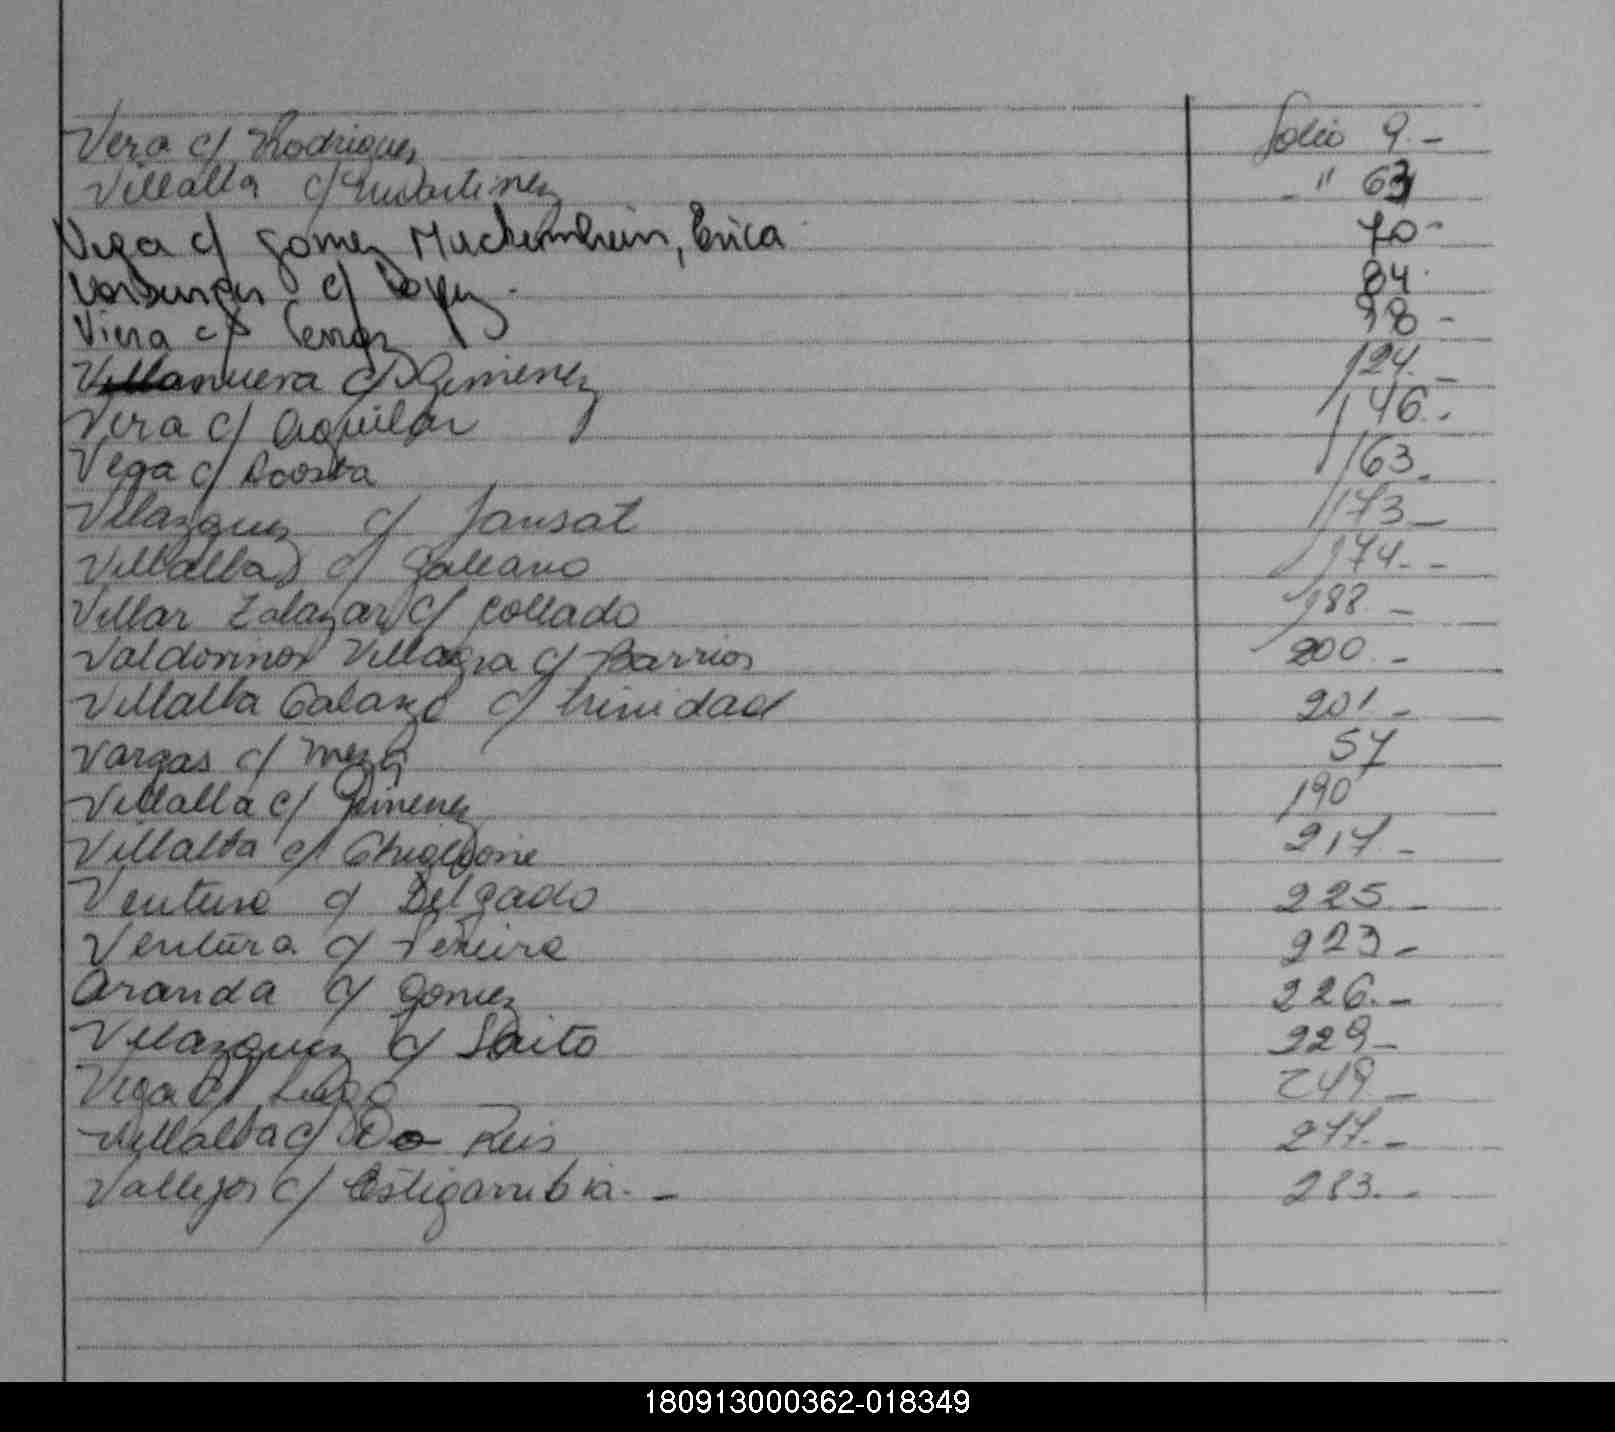 Vera c/ Rodriguez folio 9.-
Villalba c/ Martinez -" 63
Vega c/ Gomez Muckenheim, Erica 70-
c/ Lopez. 84.
Viera c/ 98-
Villanueva c/ Gimenez 124.-
Vera c/ Aguilar 146.-
Vega c/ Acosta 163.
Velazquez c/ Jansat 173-
Villalba c/ Galeano 174.--
Villar Zalazar c/ Collado 188.-
Valdovinos Villagra c/ Barrios 200.-
Villalba c/ Trinidad 201.-
Vargas c/ Meza 57
Villalba c/ Gimenez 190
Villalba c/ Ghiglione 217.-
Ventura c/ Delgado 225.-
Ventura c/ 223-
Aranda c/ Gomez 226.-
Velazquez c/ Saito 229-
Vega c/ Lugo 249.-
Villalba c/ Do Reis 277.-
Vallejos c/ Estigarribia.- 283.-
180913000362-018349